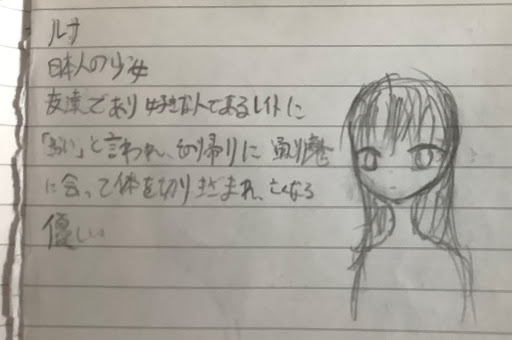 ルナ
日本人の少女
友達であり好きな人であるレイトに
「 い」と言われ、 帰りに通り魔
に会って体を切り刻まれ、亡くなる
優しい